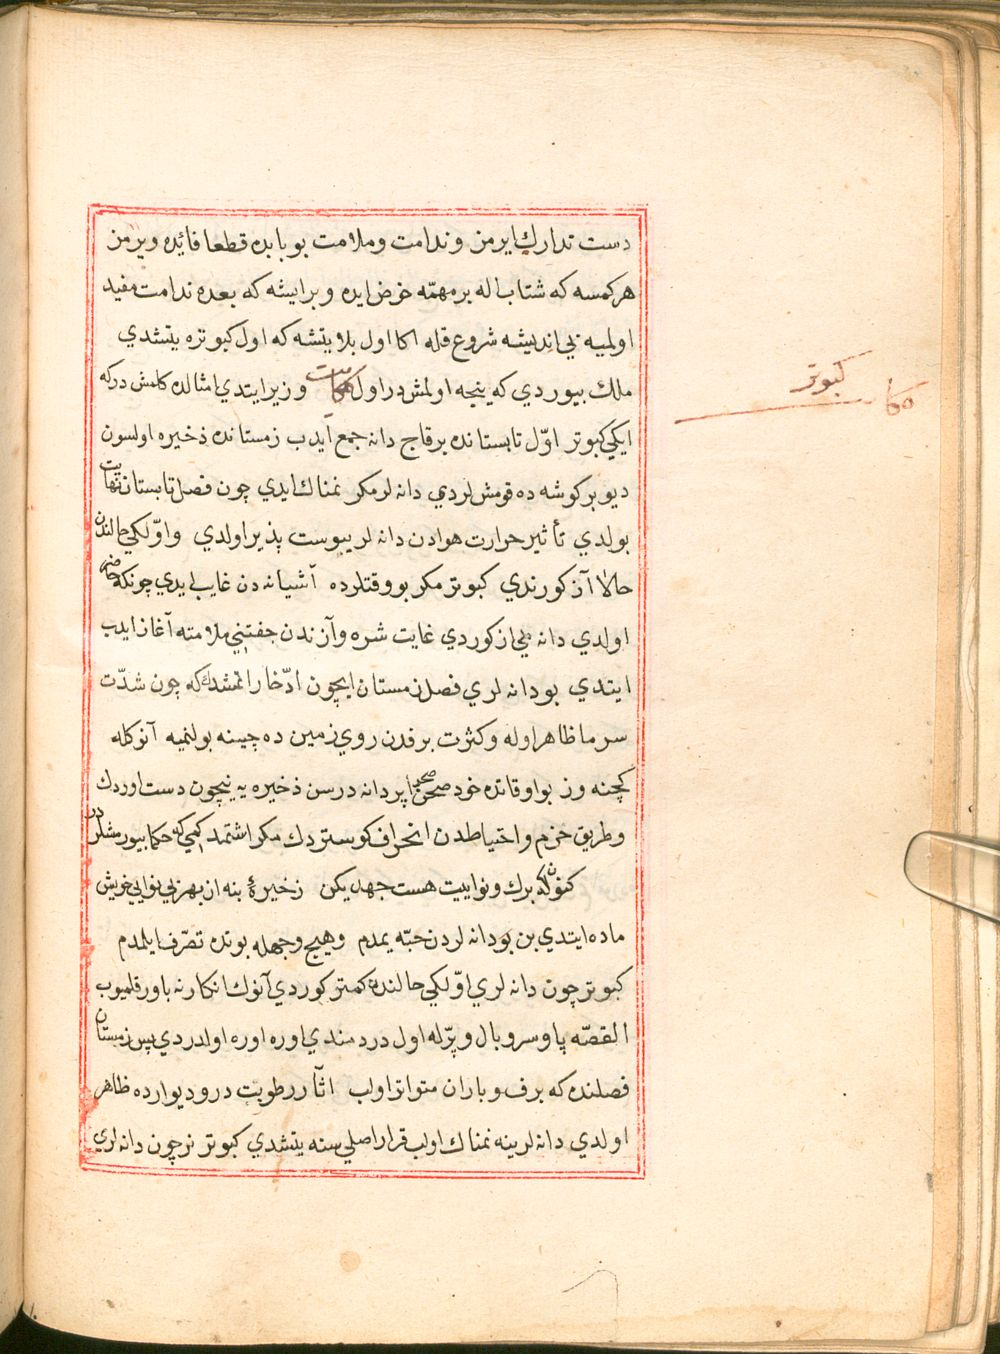 دست تدارك ايرمز و ندامت و ملامت بو بابده قطعا فائده ويرمز
هر كمسه كه شتاب اله بر مهمّه خوض ايده و بر ايشه كه بعده ندامت مفيد
اولميه بي انديشه شروع قله اكا اول بلا يتشه كه اول كبوتره يتشدي
ملك بيوردي كه نيجه اولمش در اول حكايت وزير ايتدي امثالده كلمش در كه
ايكي كبوتر اوّل تابستانده بر قاج دانه جمع ايدب زمستانده ذخيره اولسون
ديو بر كوشه ده قومش لردي دانه لر مكر نمناك ايدي چون فصل تابستان نهايت
بولدي تأثير حرارت هوادن دانه لر يبوست پذير اولدي و اوّلكي حالندن
حالا آز كورندي كبوتر مكر بو وقتلرده آشيانه دن غايب ايدي چونكه حاضر
اولدي دانه يي از كوردي غايت شره و آزندن جفتيني ملامته آغاز ايدب
ايتدي بو دانه لري فصل زمستان ايچون ادّخار اتمشدك كه چون شدّت
سرما ظاهر اوله و كثرت برفدن روي زمين ده چينه بولنميه آنوكله
كچنه وز بو اوقاتده خود صحن صحرا پر دانه در سن ذخيره يه نيچون دست اوردك
و طريق حزم و احتياطدن انحراف كوستردك مكر اشتمدكمي كه حكما بيورمشلردر
كنون كه برك و نواييت هست جهد بكن ذخيرۀ بنه از بهر بي نوايي خويش
ماده ايتدي بن بو دانه لردن حبّه يمدم و هيچ وجهله بونده تصرّف ايلمدم
كبوتر چون دانه لري اوّلكي حالنده كمتر كوردي آنوك انكارنه باور قلميوب
القصّه پا و سر و بال و پرّله اول دردمندي اوره اوره اولدردي پس زمستان
فصلنده كه برف و باران متواتر اولب اثار رطوبت در و ديوارده ظاهر
اولدي دانه لر ينه نمناك اولب قرار اصلي سنه يتشدي كبوتر نر چون دانه لري
كبوتر
حكايت